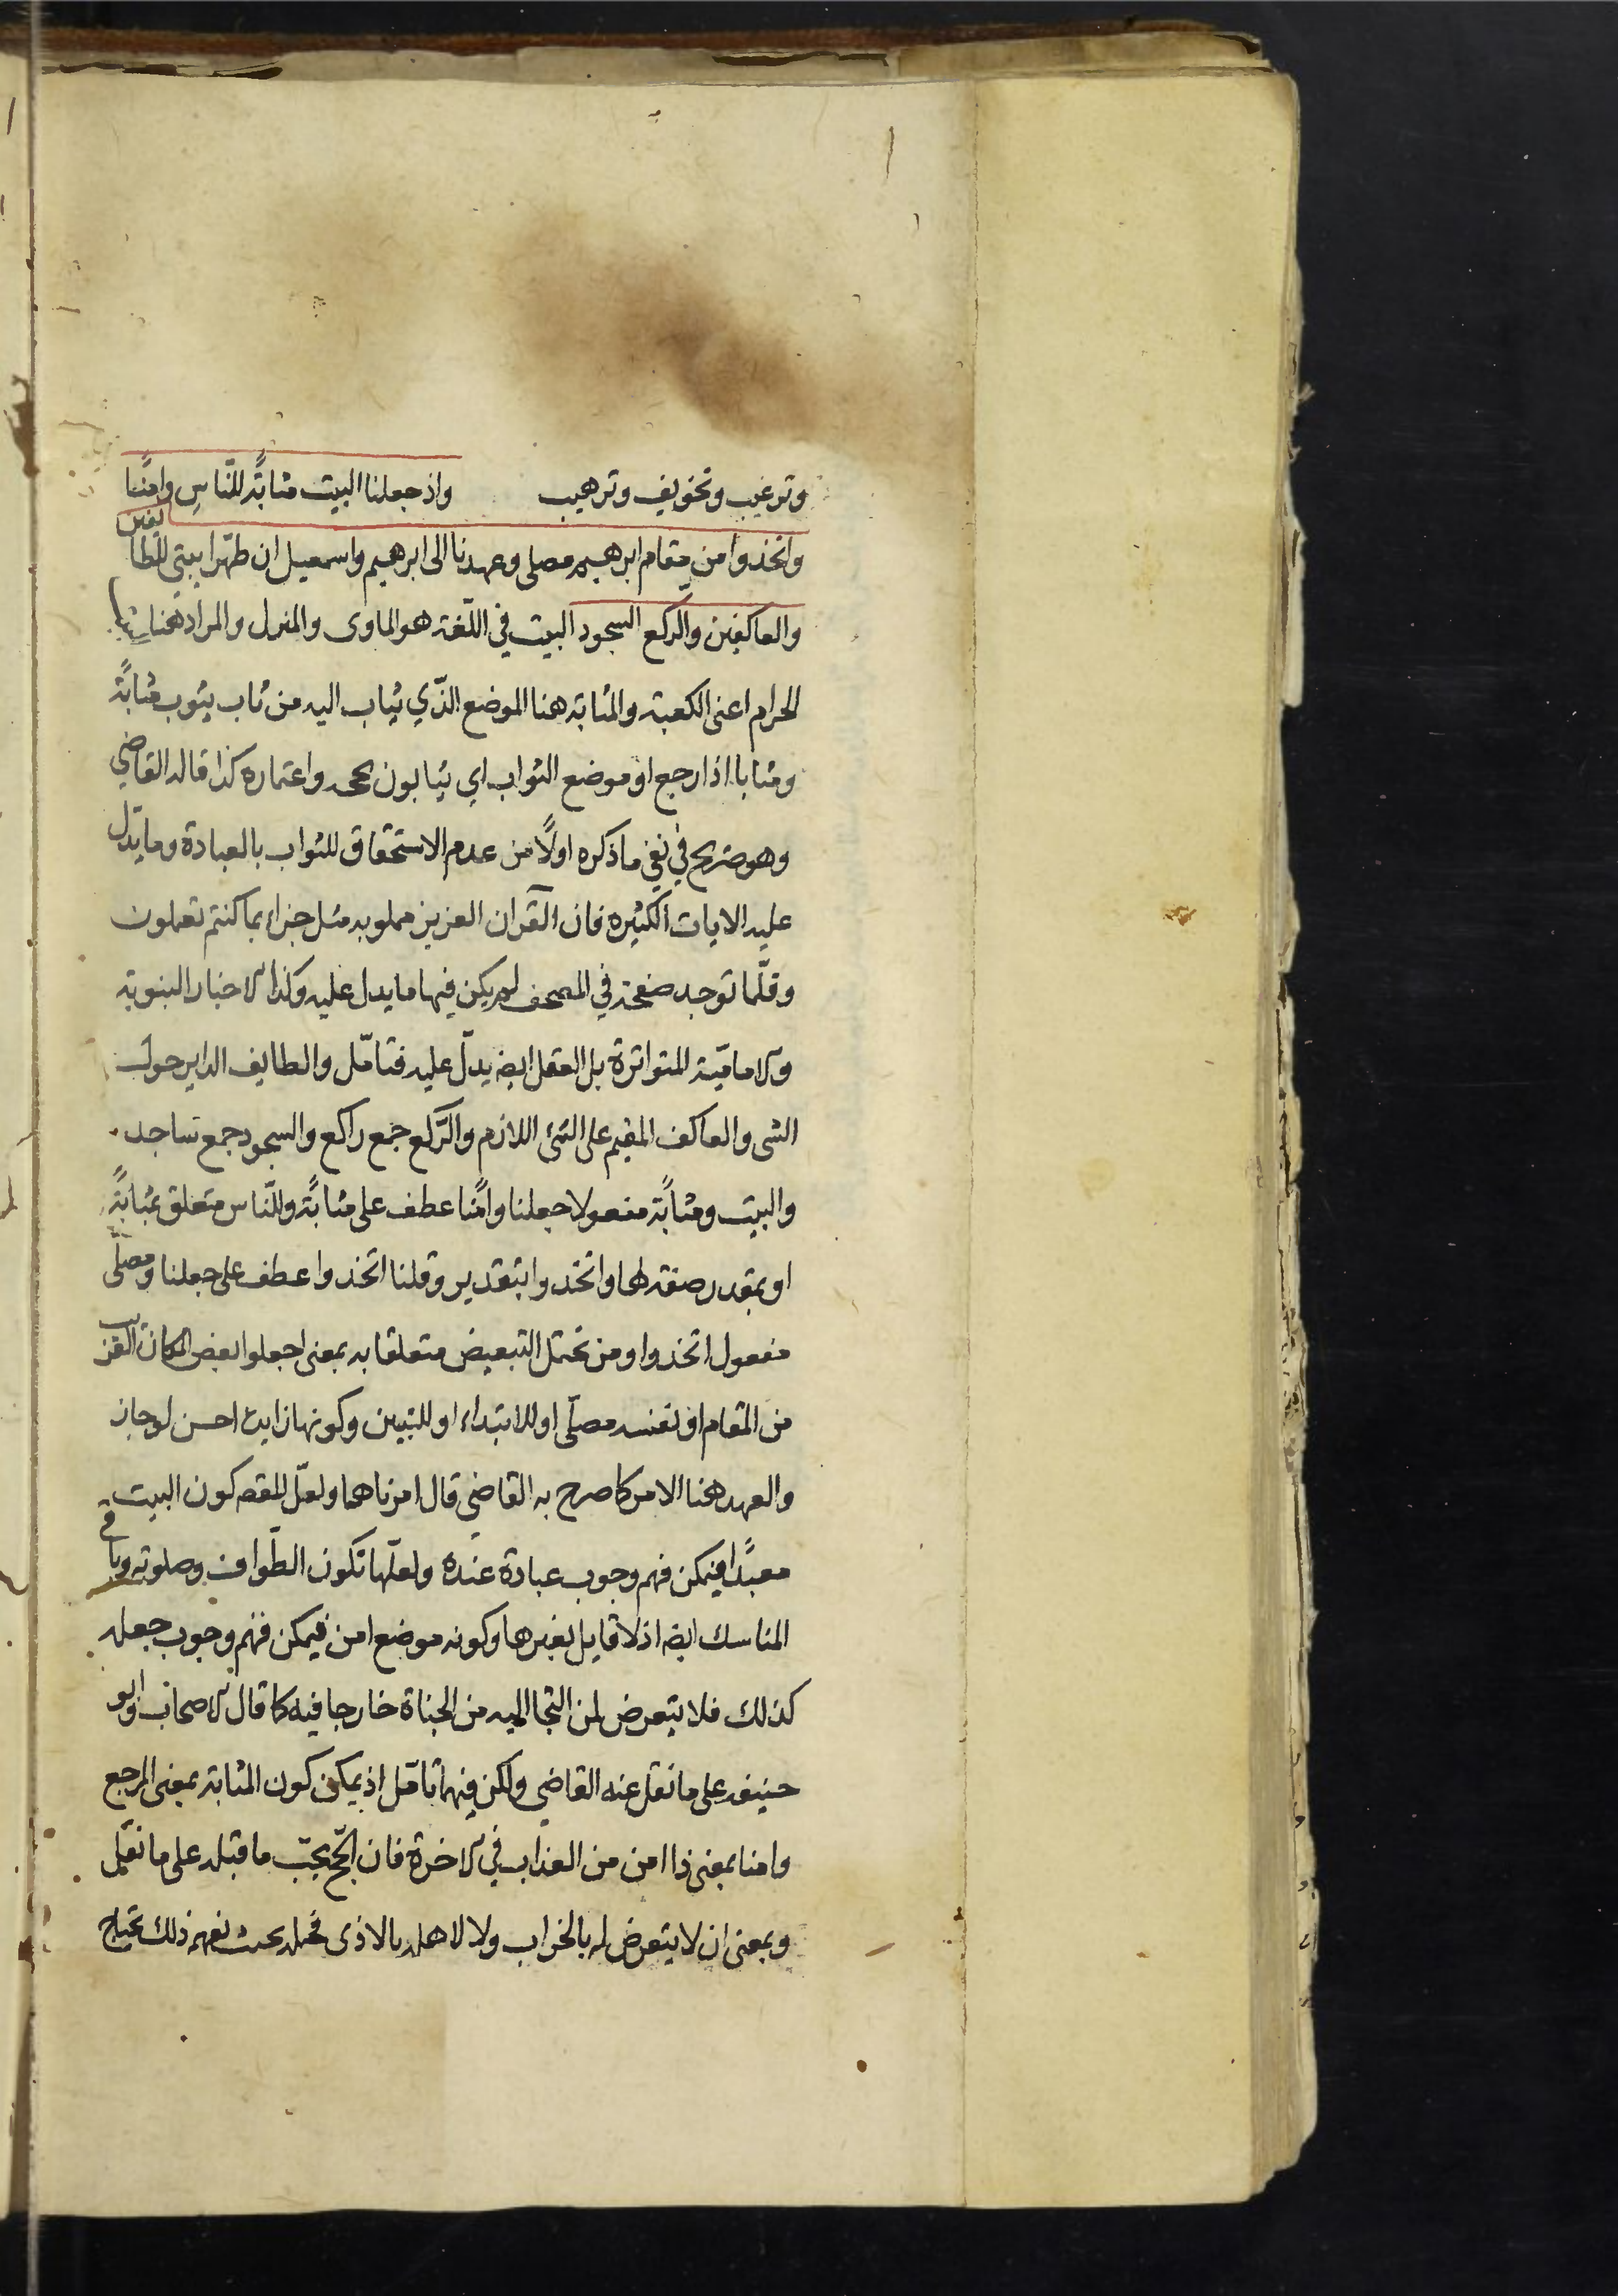 وترغيب وتخويف وترهيب واذ جعلنا البيت مثابةً للنّاسِ وامنًا
واتخذوا من مقام ابرهيم مصلى وعهدنا الى ابرهيم واسمعيل ان طهّرا بيتي للطايفين
والعاكفين والركع السجود البيت في اللّغة هو الماوى والمنزل والمراد هنا
الحرام اعنى الكعبة والمثابة هنا الموضع الذّي يثاب اليه من ثاب يثوب مثابةً
ومثابا اذا رجع او موضع الثواب اي يثابون بحجه واعتماره كذا قاله القاضي
وهو صريح في نفي ما ذكره اولًا من عدم الاستحقاق للثواب بالعبادة وما يدل
عليه الايات الكثيره فان القرآن العزيز مملو به مثل جزاء بما كنتم تعملون
وقلّما توجد صفحة في المصحف لم يكن فيها ما يدل عليه وكذا الاخبار النبوية
والاماميّة المتواترة بل العقل ايضه يدلّ عليه فتامّل والطايف الداير حول
الشى والعاكف المقيم على الشئ اللازم والركّع جمع راكع والسجود جمع ساجد
والبيت ومثابةً مفعولا جعلنا وامنًا عطف على مثابةً وللنّاس متعلق بمثابةً
او بمقدر صفة لها واتخذوا بتقدير وقلنا اتخذوا عطف على جعلنا ومصلّى
مفعول اتخذوا ومن تحتمل التبعيض متعلقا به بمعنى اجعلوا بعض المكان القريب
من المقام او نفسه مصلّى او للابتداء او للتبيين وكونها زايدة احسن لو جاز
والعهد هنا الامر كما صرح به القاضي قال امرناهما ولعلّ المقصه كون البيت
معبدًا فيمكن فهم وجوب عبادة عنده ولعلّها تكون الطّواف وصلوته وباقي
المناسك ايضه اذ لا قايل بغيرها وكونه موضع امن فيمكن فهم وجوب جعله
كذلك فلا يتعرض لمن التجا اليه من الجناة خارجا فيه كما قال الاصحاب وابو
حنيفه على ما نقل عنه القاضي ولكن فيهما تامّل اذ يمكن كون المثابة بمعنى المرجع
وامنا بمعنى ذا امن من العذاب في الاخرة فان الحّج يجبّ ما قبله على ما نقل
وبمعنى ان لا يتعرض له بالخراب ولا لاهله بالاذى فجعله بحيث نفهم ذلك تحتاج